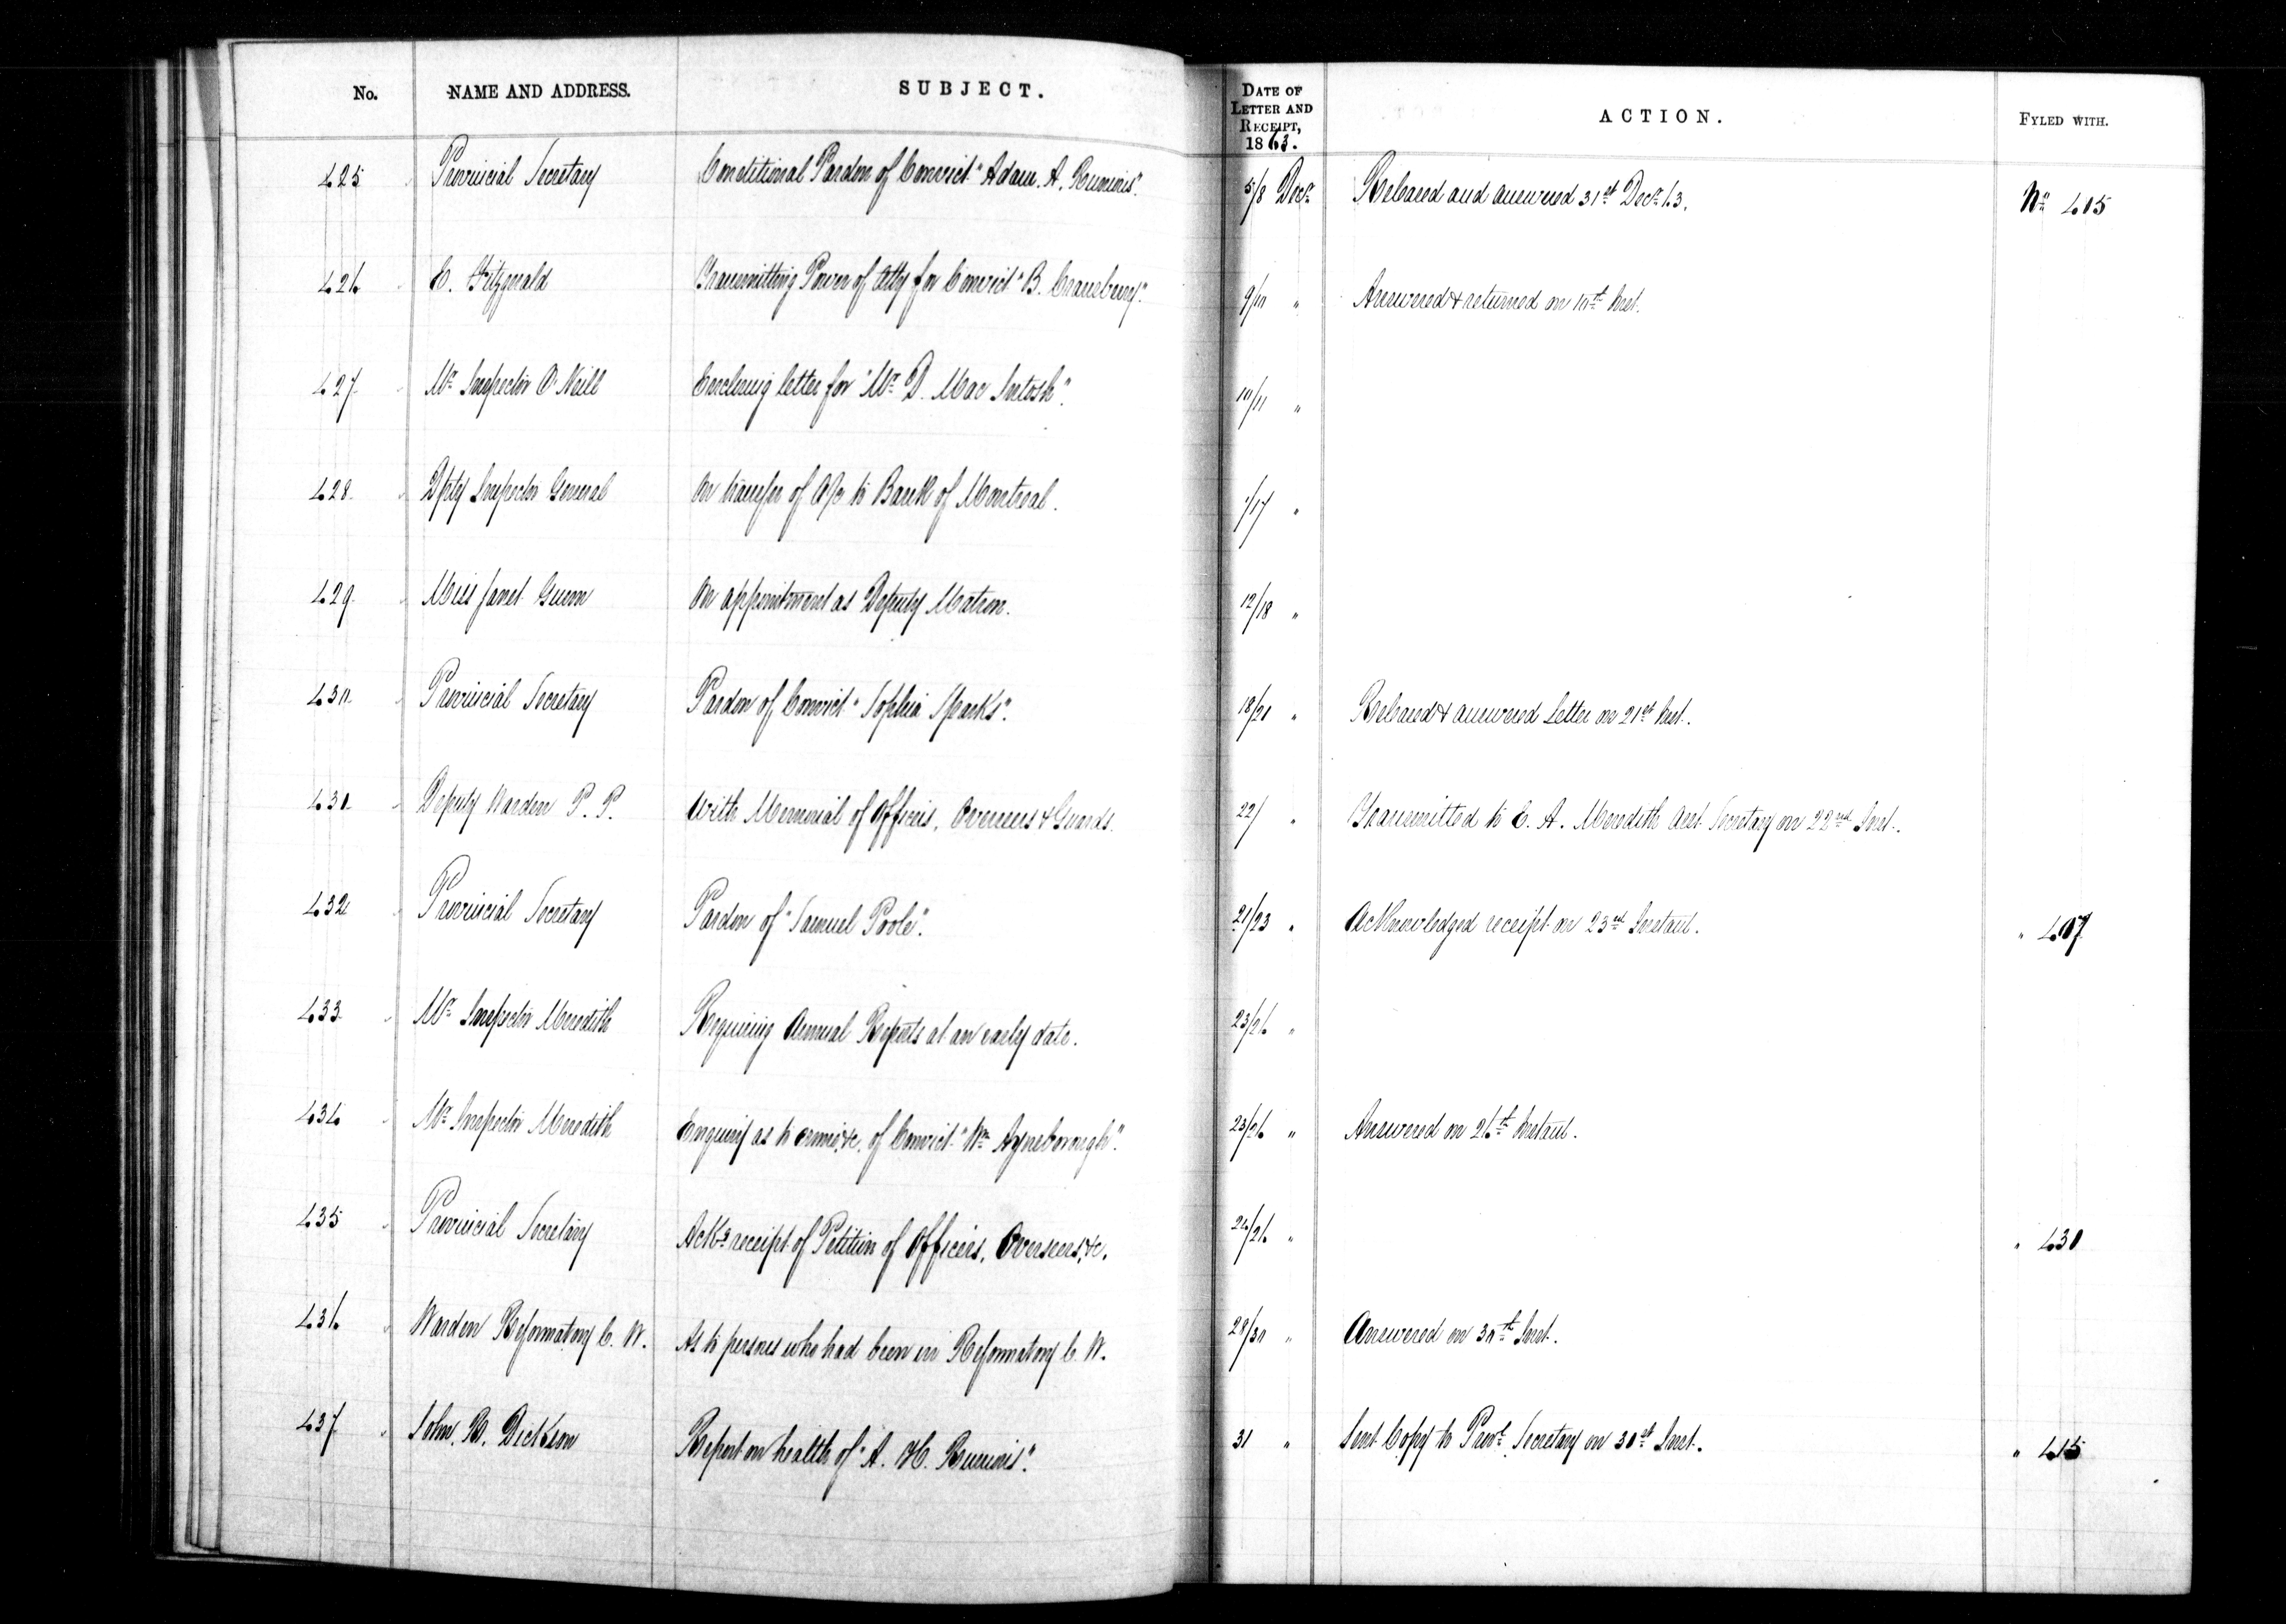 No. NAME AND ADDRESS. SUBJECT. DATE OF LETTER AND RECEIPT, 1863. ACTION. FYLED WITH.
425 Provincial Secretary Conditional Pardon of Convict "Adam. A. 5/8 Decr Released and answered 31st Decr 63. No 415
426 E. Fitzgerald Transmitting Power of Atty for Convict "B. 9/10 " Answered & returned on 10th Inst.
427 Mr Inspector O'Neill Enclosing letter for "Mr D. Mac Intosh". 10/11 "
428 Dpty Inspector General On transfer of a/c to Bank of Montreal. /17 "
429 Miss Janet Gunn On appointment as Deputy Matron. 12/18 "
430 Provincial Secretary Pardon of Convict "Sophia Sparks". 18/21 " Released & answered Letter on 21st Inst.
431 Deputy Warden P. P. With Memorial of Officers, Overseers & Guards. 22/ " Transmitted to E. A. Meredith Asst Secretary on 22nd Inst.
432 Provincial Secretary Pardon of "Samuel Poole". 21/23 " Acknowledged receipt on 23rd Instant. " 407
433 Mr Inspector Meredith Requiring Annual Reports at an early date. 23/26 "
434 Mr Inspector Meredith Enquiry as to crime, &c. of Convict "Wm 23/26 " Answered on 26th Instant.
435 Provincial Secretary Acks receipt of Petition of Officers, Overseers, &c. 24/26 " " 431
436 Warden Reformatory C. W. As to persons who had been in Reformatory C. W. 28/30 " Answered on 30th Inst.
437 John. R. Dickson Report on health of "A. H. 31 " Sent Copy to Provl Secretary on 31st Inst. " 415